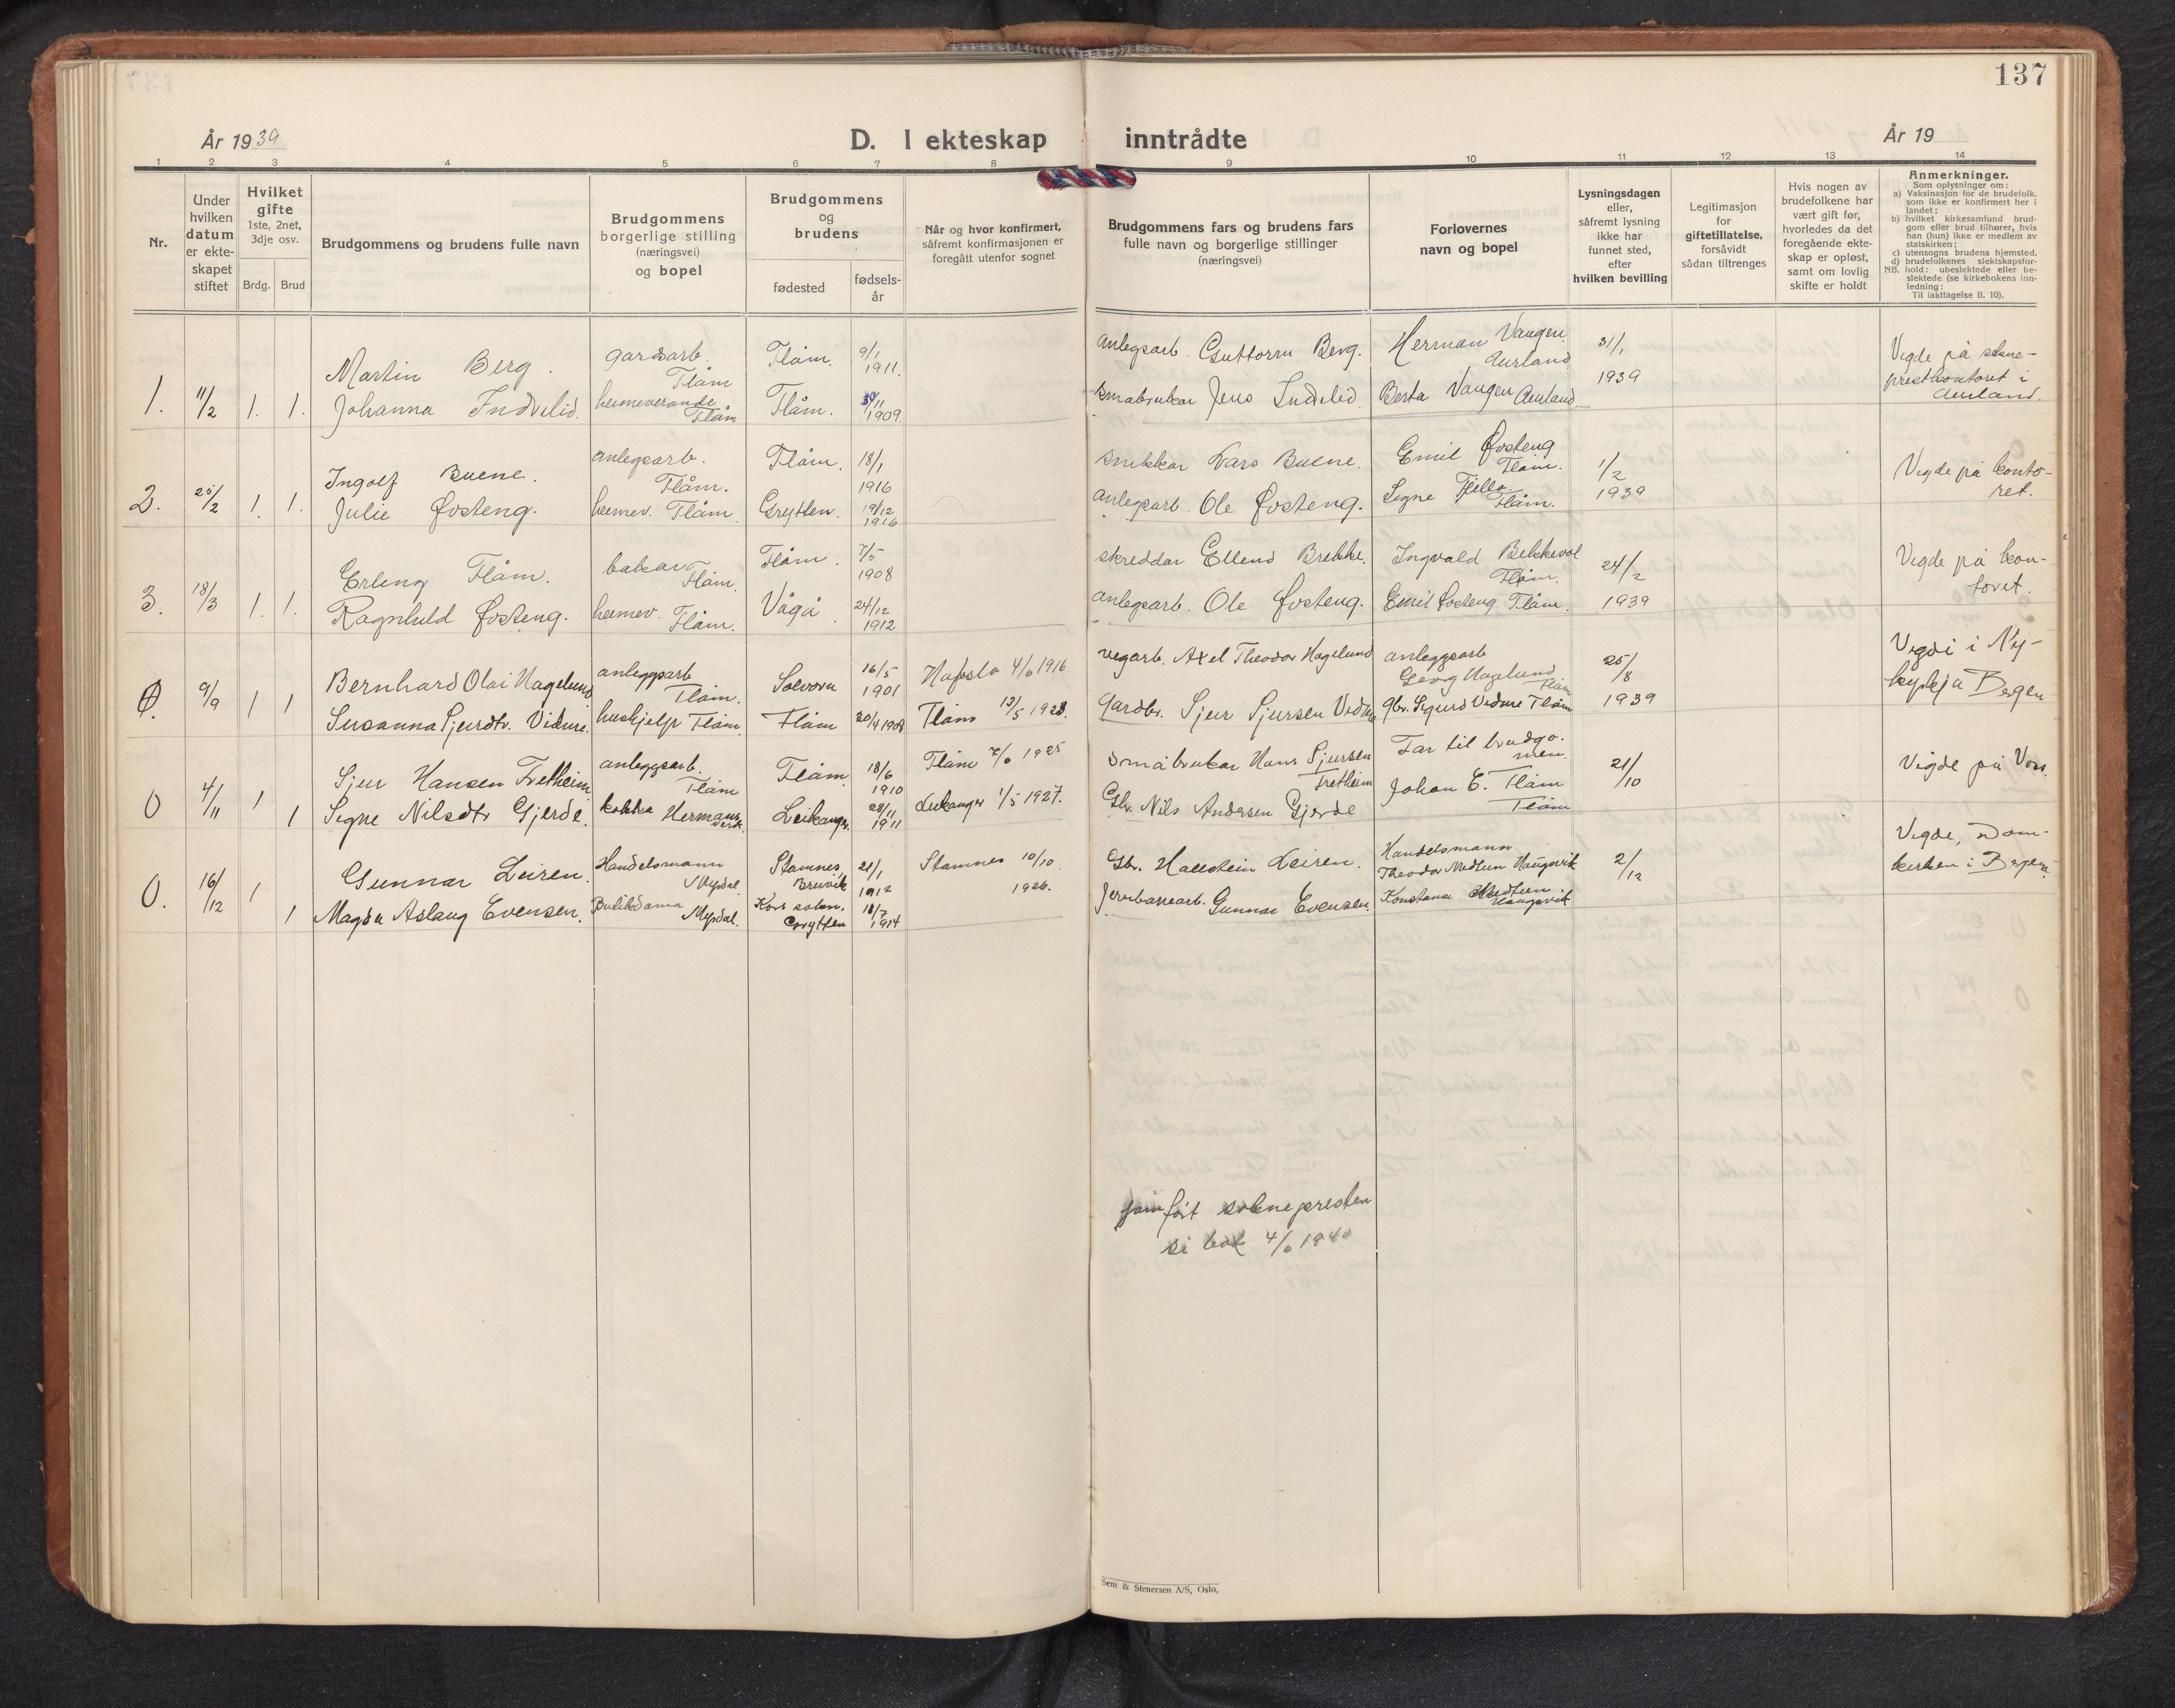 137
År 1939
D. I ekteskap inntrådte
År 19
1 2 3 4 5 6 7 8 9 10 11 12 13 14
Nr.
Under hvilken datum er ekte-skapet stiftet
Hvilket gifte 1ste, 2net, 3dje osv.
Brdg. Brud
Brudgommens og brudens fulle navn
Brudgommens borgerlige stilling (næringsvei) og bopel
Brudgommens og brudens
fødested
fødsels-år
Når og hvor konfirmert, såfremt konfirmasjonen er foregått utenfor sognet
Brudgommens fars og brudens fars fulle navn og borgerlige stillinger (næringsvei)
Forlovernes navn og bopel
Lysningsdagen eller, såfremt lysning ikke har funnet sted, efter hvilken bevilling
Legitimasjon for giftetillatelse, forsåvidt sådan tiltrenges
Hvis nogen av brudefolkene har vært gift før, hvorledes da det foregående ekte-skap er opløst, samt om lovlig skifte er holdt
Anmerkninger.
Som oplysninger om:
a) Vaksinasjon for de brudefolk, som ikke er konfirmert her i landet;
b) hvilket kirkesamfund brud-gom eller brud tilhører, hvis han (hun) ikke er medlem av statskirken;
c) utensogns brudens hjemsted.
d) brudefolkenes slektskapsfor-hold: ubeslektede eller be-slektede (se kirkebokens inn-ledning:
NB.
Til iakttagelse II. 10).
1. 11/2 1. 1.
Martin Berg. gardsarb. Flåm Flåm. 9/1 1911. anlegsarb. Guttorm Berg. Herman Vangen Aurland 31/1 1939 Vigde på sokne-prestkontoret i Aurland.
Johanna Indrelid. heimeverande Flåm Flåm. /11 1909. småbrukar Jens Indrelid. Berta Vangen Aurland
2. 25/2 1. 1.
Ingolf Buene. anlegsarb. Flåm. Flåm. 18/1 1916 snikkar Lars Buene. Emil Øvsteng Flåm. 1/2 1939 Vigde på konto-ret.
Julie Øvsteng. heimev. Flåm. Grytten. 19/12 1916 anlegsarb. Ole Øvsteng. Signe Flåm.
3. 18/3 1. 1.
Erling Flåm. bakar Flåm. Flåm. 7/5 1908 skreddar Ellend Brekke. Ingvald Bekkevol Flåm. 24/2 1939 Vigde på kon-toret.
Ragnhild Øvsteng. heimev. Flåm. Vågå 24/12 1912 anlegsarb. Ole Øvsteng. Emil Øvsteng Flåm.
0. 9/9 1 1
Bernhard Olai Hagelund anleggsarb Flåm. Solvorn 16/5 1901 Hafslo 4/6 1916 vegarb. Axel Theodor Hagelund anleggsarb Georg Hagelund Flåm 25/8 1939 Vigdi i Ny-kyrkja Bergen
Susanna Sjurdtr. Vidme. hushjelp Flåm. Flåm 20/4 1908 Flåm 13/5 1923. Gardbr. Sjur Sjursen Vidme gbr. Sigurd Vidme Flåm
0 4/11 1 1
Sjur Hansen Fretheim anleggsarb. Flåm Flåm 18/6 1910 Flåm 7/6 1925 småbrukar Hans Sjursen Fretheim Far til brudgo-men. 21/10 Vigde på Voss.
Signe Nilsdtr Gjerde. kokka Hermansverk Leikanger. 28/11 1911 Leikanger 1/5 1927. Gbr. Nils Andersen Gjerde Johan E. Flåm Flåm
0. 16/12 1 1
Gunnar Leiren. Handelsmann Myrdal. Stamnes Bruvik 21/1 1912 Stamnes 10/10 1926. Gbr. Hallstein Leiren. Handelsmann Theodor Midtun Haugsvik 2/12 Vigde, Dom-kirken i Bergen
Magda Aslaug Evensen. Butikdama Myrdal. Kors sokn. Grytten 18/7 1914 Jernbanearb. Gunnar Evensen. Konstanse Midtun Haugsvik
jamført soknepresten
si bok 4/6 1940
Sem & Stenersen A/S, Oslo.